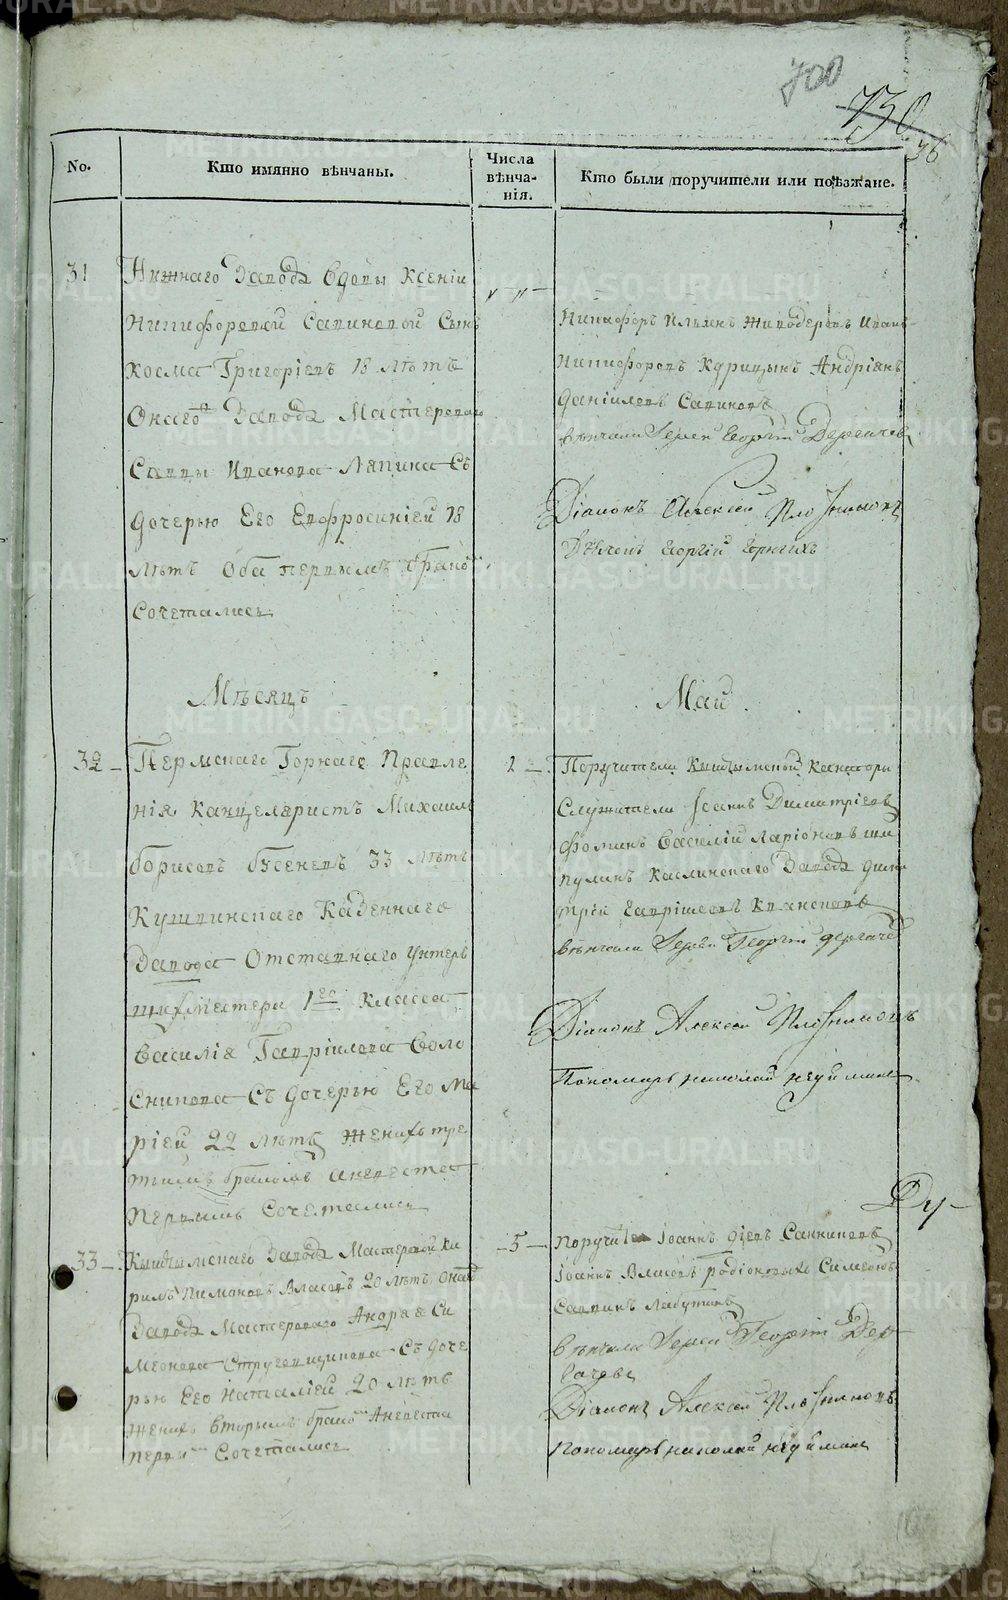 700
730
36
No.
Кто имянно вѣнчаны.
Числа вѣнча-нія.
Кто были поручители или поѣзжане.
31
Нижнаго Завода Вдовы Ксеніи
Никифоровой Савиновой Сынъ
Косма Григоріевъ 18 лѣтъ
Онаго Завода Мастероваго
Саввы Иванова Ляпина Съ
дочерью Его Евфросиніей 18
лѣтъ Оба первымъ бракомъ
Сочетались
Никифоръ Ильинъ Иванъ
Никифоровъ Андріянъ
Даніиловъ Савиновъ
вѣнчали Іерей Георгій Дергачевъ
Діаконъ Алексей
Дьячекъ Георгій
Мѣсяцъ
Май
32
Пермскаго Горнаго Правле
нія Канцеляристъ Михаилъ
борисовъ 33 лѣтъ
Кушвинскаго Казеннаго
Завода Отставнаго Унтеръ
шихмейстера 1го класса
Василія Гавріилова Воло
скикова Съ дочерью Его Ма
ріей 22 лѣтъ женихъ тре
тьимъ бракомъ а невеста
Первымъ Сочетались
2
Поручители Кыштымской Канторы
Служители Іоаннъ Димитріевъ
Фоминъ Василій Ларіоновъ Ши
пулинъ Каслинскаго Завода Дими
трій Гавріиловъ
вѣнчали Іерей Георгій Дергачевъ
Діаконъ Алексей
Пономарь николай
Ду
33
Кыштымскаго Завода Мастеровой Ки
рилъ Пимоновъ Власовъ 20 лѣтъ Онаго
Завода Мастероваго Андрея Си
меонова Съ доче
рью Его Наталіей 20 лѣтъ
женихъ вторымъ бракомъ Аневеста
первымъ Сочетались
5
Поручители Іоаннъ Санниковъ
Іоаннъ Власовъ Симеонъ
Саввинъ
вѣнчали Іерей Георгій Дер
гачевъ
Діаконъ Алексей
Пономарь николай